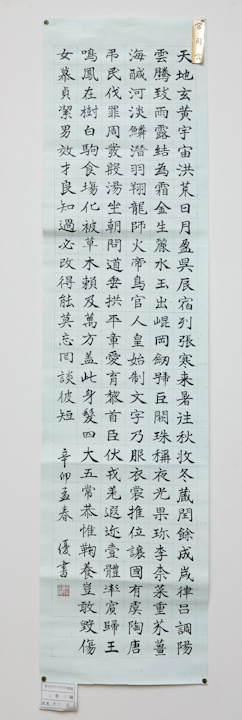 天地玄黃宇宙洪荒日月盈昃辰宿列張寒来暑往秋收冬藏閏餘成歲律呂調陽
雲騰致雨露結為霜金生麗水玉出崐岡劒號巨闕珠稱夜光果珍李柰菜重芥薑
海醎河淡鱗潛羽翔龍師火帝鳥官人皇始制文字乃服衣裳推位讓國有虞陶唐
吊民伐罪周發殷湯坐朝問道垂拱平章愛育黎首臣伏戎羌遐迩壹體率賓歸王
鳴鳳在樹白駒食場化被草木賴及萬方盖此身髮四大五常恭惟鞠養豈敢毀傷
女慕貞潔男效才良知過必改得能莫忘罔談彼短
辛卯孟春 優書